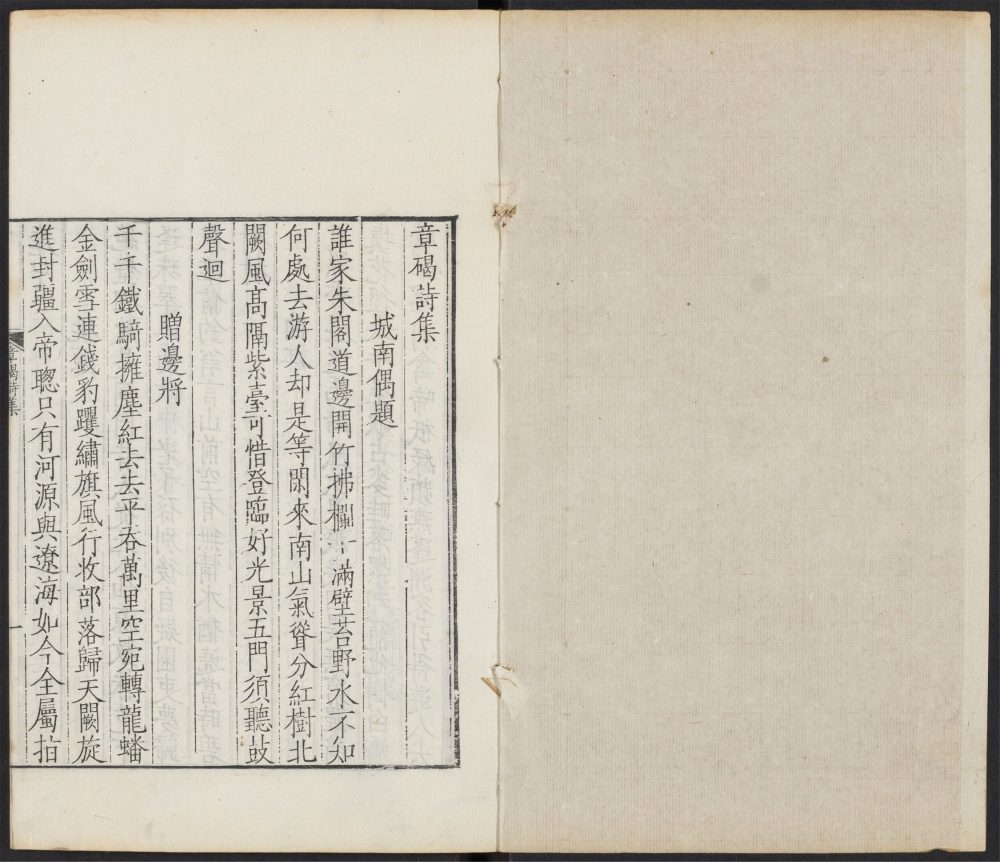 章碣詩集
城南偶題
誰家朱閣道邊開竹拂欄干滿壁苔野水不知
何處去游人却是等閑來南山氣聳分紅樹北
闕風髙隔紫臺可惜登臨好光景五門須聽鼓
聲迴
贈邊將
千千鐵騎擁塵紅去去平吞萬里空宛轉龍蟠
金劍雪連錢豹躩繡旗風行收部落歸天闕旋
進封疆入帝聦只有河源與遼海如今全屬指
章碣詩集
一